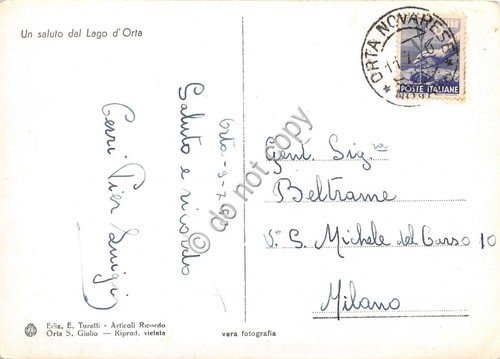 Un saluto dal Lago d'Orta
ORTA NOVARESE
POSTE ITALIANE
Orta-9-7-
Saluto e ricordo
Cerri Pier Luigi
Gent. Sig.ra
Beltrame
V. S. Michele del Carso 10
Milano
Ediz. E. Turatti - Articoli Ricordo
Orta S. Giulio - Riprod. vietata
vera fotografia
do not copy